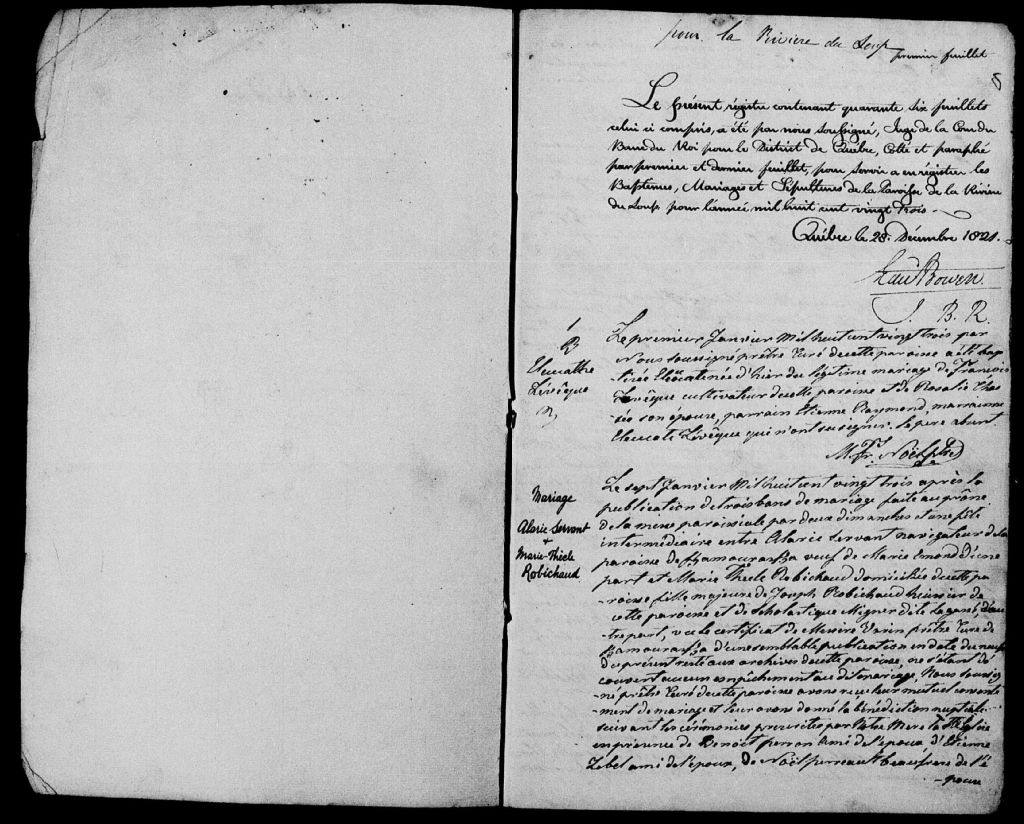 pour la Riviere du Loup
premier feuillet
8
Le présent régistre contenant quarante six feuillets
celui ci compris, a été par nous soussigné, Juge de la Cour du
Banc du Roi pour le District de Québec, Cotté et paraphé
par premier et dernier feuillet, pour servir a enrégistrer les
Baptêmes, Mariages et Sépultures de la Paroisse de la Rivière
du Loup pour l'année mil huit cent vingt trois.
Québec le 28. Décembre 1821.
Edw Bowen
J. B. R.
1
B
Lévêque
Le premier Janvier Mil huit cent vingt trois par
Nous soussigné prêtre Curé de cette paroisse a été bap
tisée née d'hier du légitime mariage de Francois
Lévêque cultivateur de cette paroisse et de Rosalie
son épouse, parrain Etienne Raymond, marrainne
Lévêque qui n'ont su signer. le pere absent.
M. Fr. Noël ptre
Mariage
Alarie Servant
+
Marie-Thècle
Robichaud
Le sept Janvier Mil huit cent vingt trois après la
publication de trois bans de mariage faite au prône
de la messe paroissiale par deux dimanches et une fête
intermédiaire entre Alarie servant navigateur de la
paroisse de Kamouraska veuf de Marie Emond d'une
part et Marie Thecle Robichaud domiciliée de cette pa
roisse fille majeure de Joseph Robichaud huissier de
cette paroisse et de Scholastique Migner dite Lagassé, d'au
tre part, vu le certificat de Messire Varin prêtre Curé de
Kamouraska d'une semblable publication en date du neuf
du présent resté aux archives de cette paroisse, ne s'étant dé
couvert aucun empêchement au dit mariage, Nous soussig
né prêtre Curé de cette paroisse avons reçu leur mutuel consente
ment de mariage et leur avons donné la bénédiction nuptiale
suivant les cérémonies prescrites par Notre Mere la Ste Eglise
en présence de Benoit perron Ami de l'époux d'Etienne
Lebel ami de l'époux, de Noël perreault beaufrere de l'é
-pouse